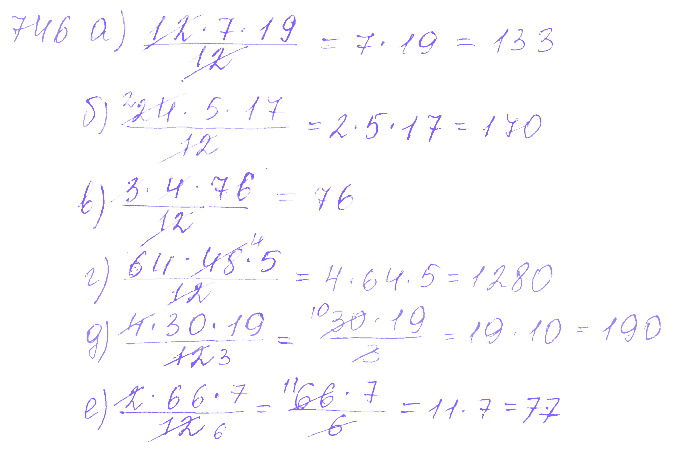 746 а) 12 · 7 · 19 / 12 = 7 · 19 = 133
б) 2 24 · 5 · 17 / 12 = 2 · 5 · 17 = 170
в) 3 · 4 · 76 / 12 = 76
г) 64 · 48 4 · 5 / 12 = 4 · 64 · 5 = 1280
д) 4 · 30 · 19 / 12 3 = 10 30 · 19 / 3 = 19 · 10 = 190
е) 2 · 66 · 7 / 12 6 = 11 66 · 7 / 6 = 11 · 7 = 77